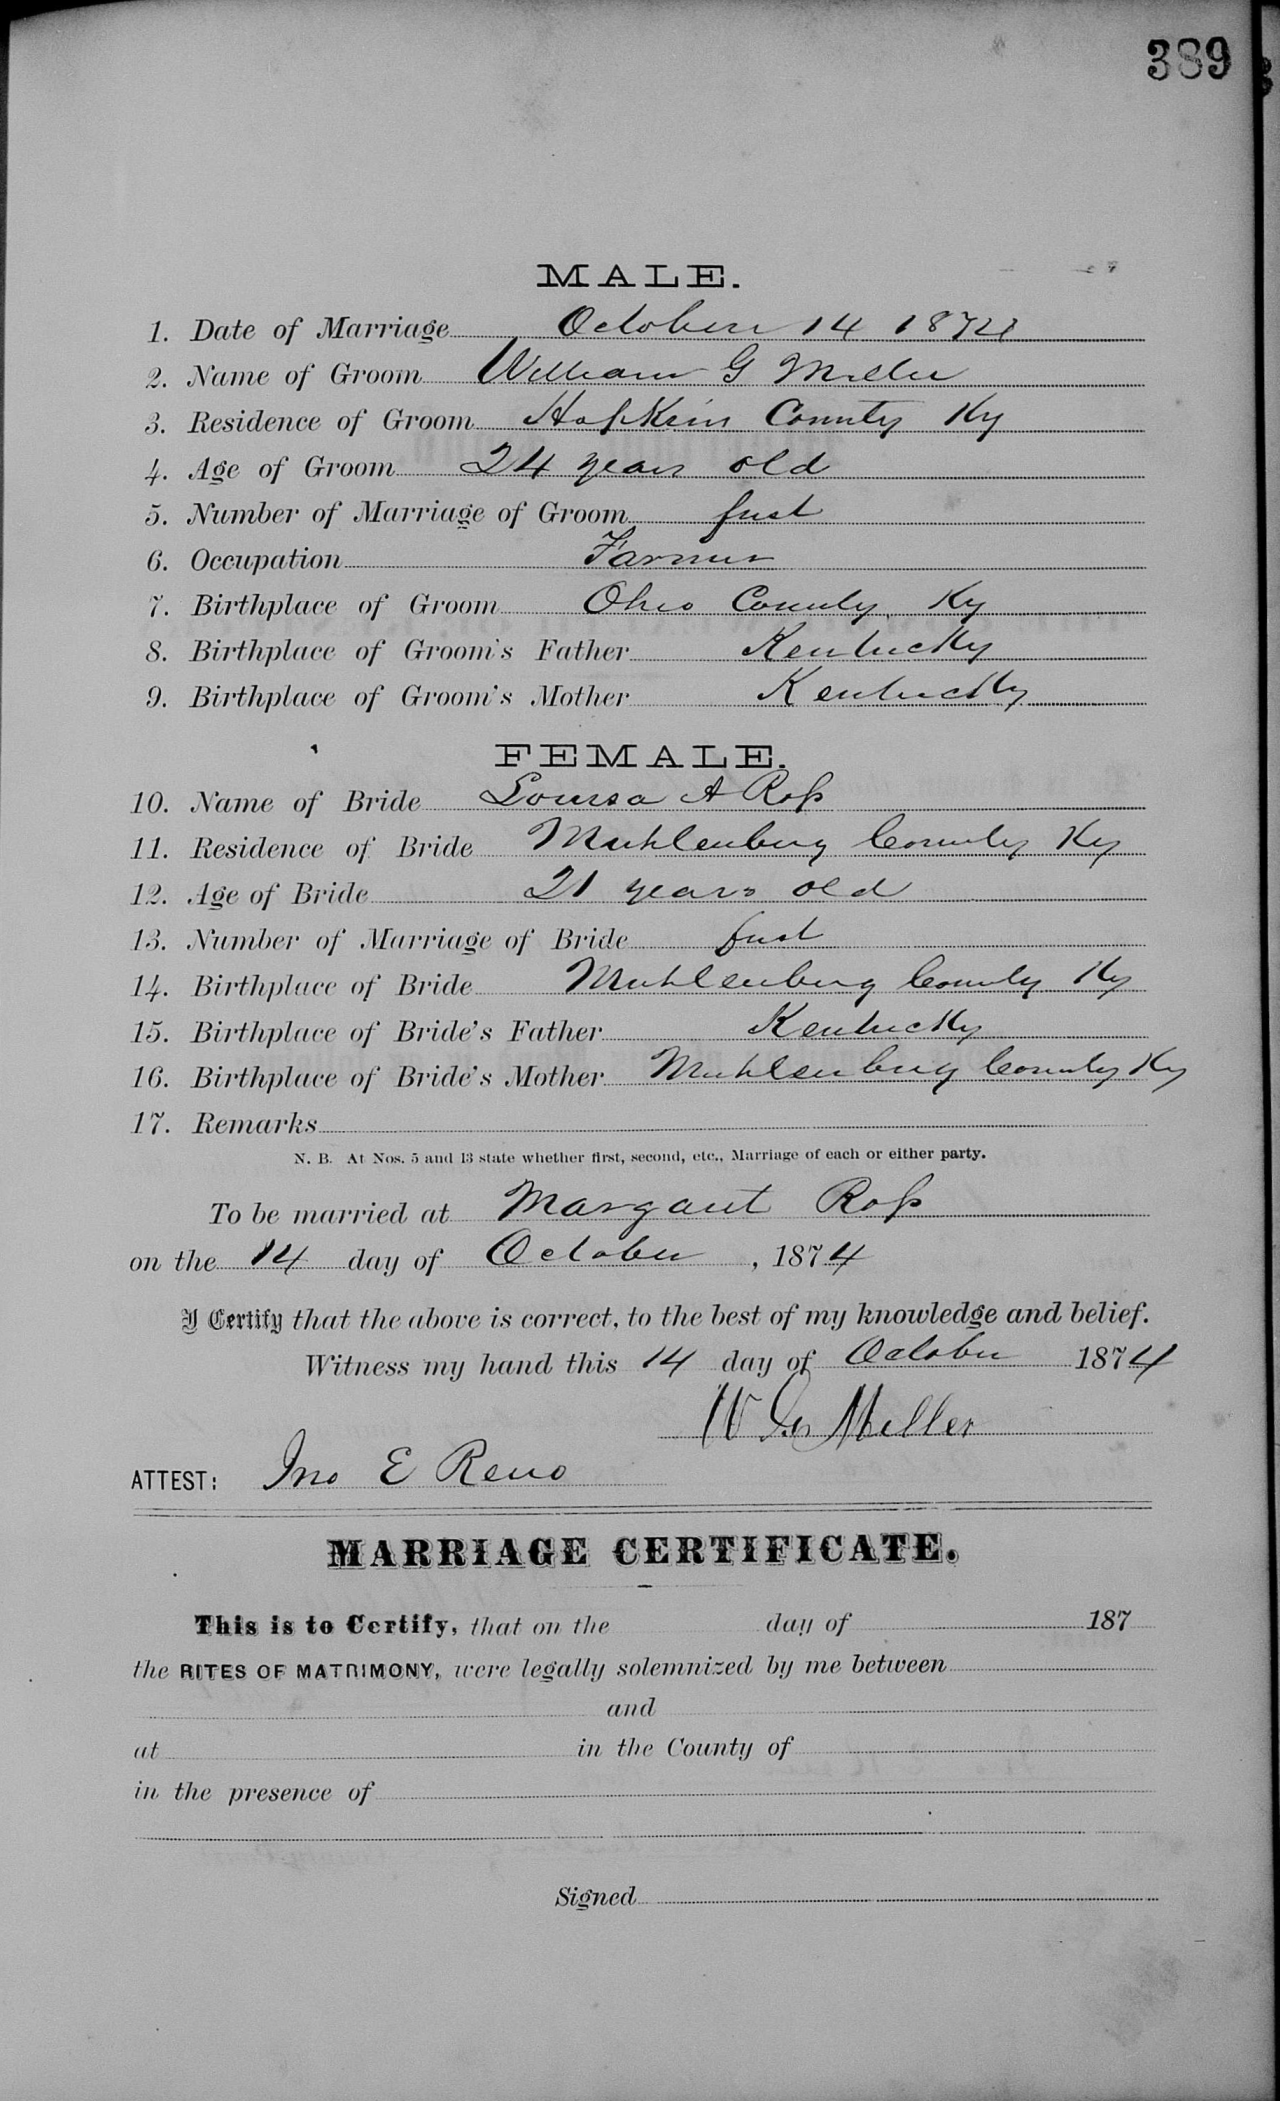 389
MALE.
1. Date of Marriage October 14 1874
2. Name of Groom William G Miller
3. Residence of Groom Hopkins County Ky
4. Age of Groom 24 years old
5. Number of Marriage of Groom first
6. Occupation Farmer
7. Birthplace of Groom Ohio County Ky
8. Birthplace of Groom's Father Kentucky
9. Birthplace of Groom's Mother Kentucky
FEMALE.
10. Name of Bride Louisa A Ross
11. Residence of Bride Muhlenburg County Ky
12. Age of Bride 21 years old
13. Number of Marriage of Bride first
14. Birthplace of Bride Muhlenburg County Ky
15. Birthplace of Bride's Father Kentucky
16. Birthplace of Bride's Mother Muhlenburg County Ky
17. Remarks
N. B. At Nos. 5 and 13 state whether first, second, etc., Marriage of each or either party.
To be married at Margaret Ross
on the 14 day of October, 1874
I Certify that the above is correct, to the best of my knowledge and belief.
Witness my hand this 14 day of October 1874
W G Miller
ATTEST: Jno E Reno
MARRIAGE CERTIFICATE.
This is to Certify, that on the day of 187
the RITES OF MATRIMONY, were legally solemnized by me between
and
at in the County of
in the presence of
Signed